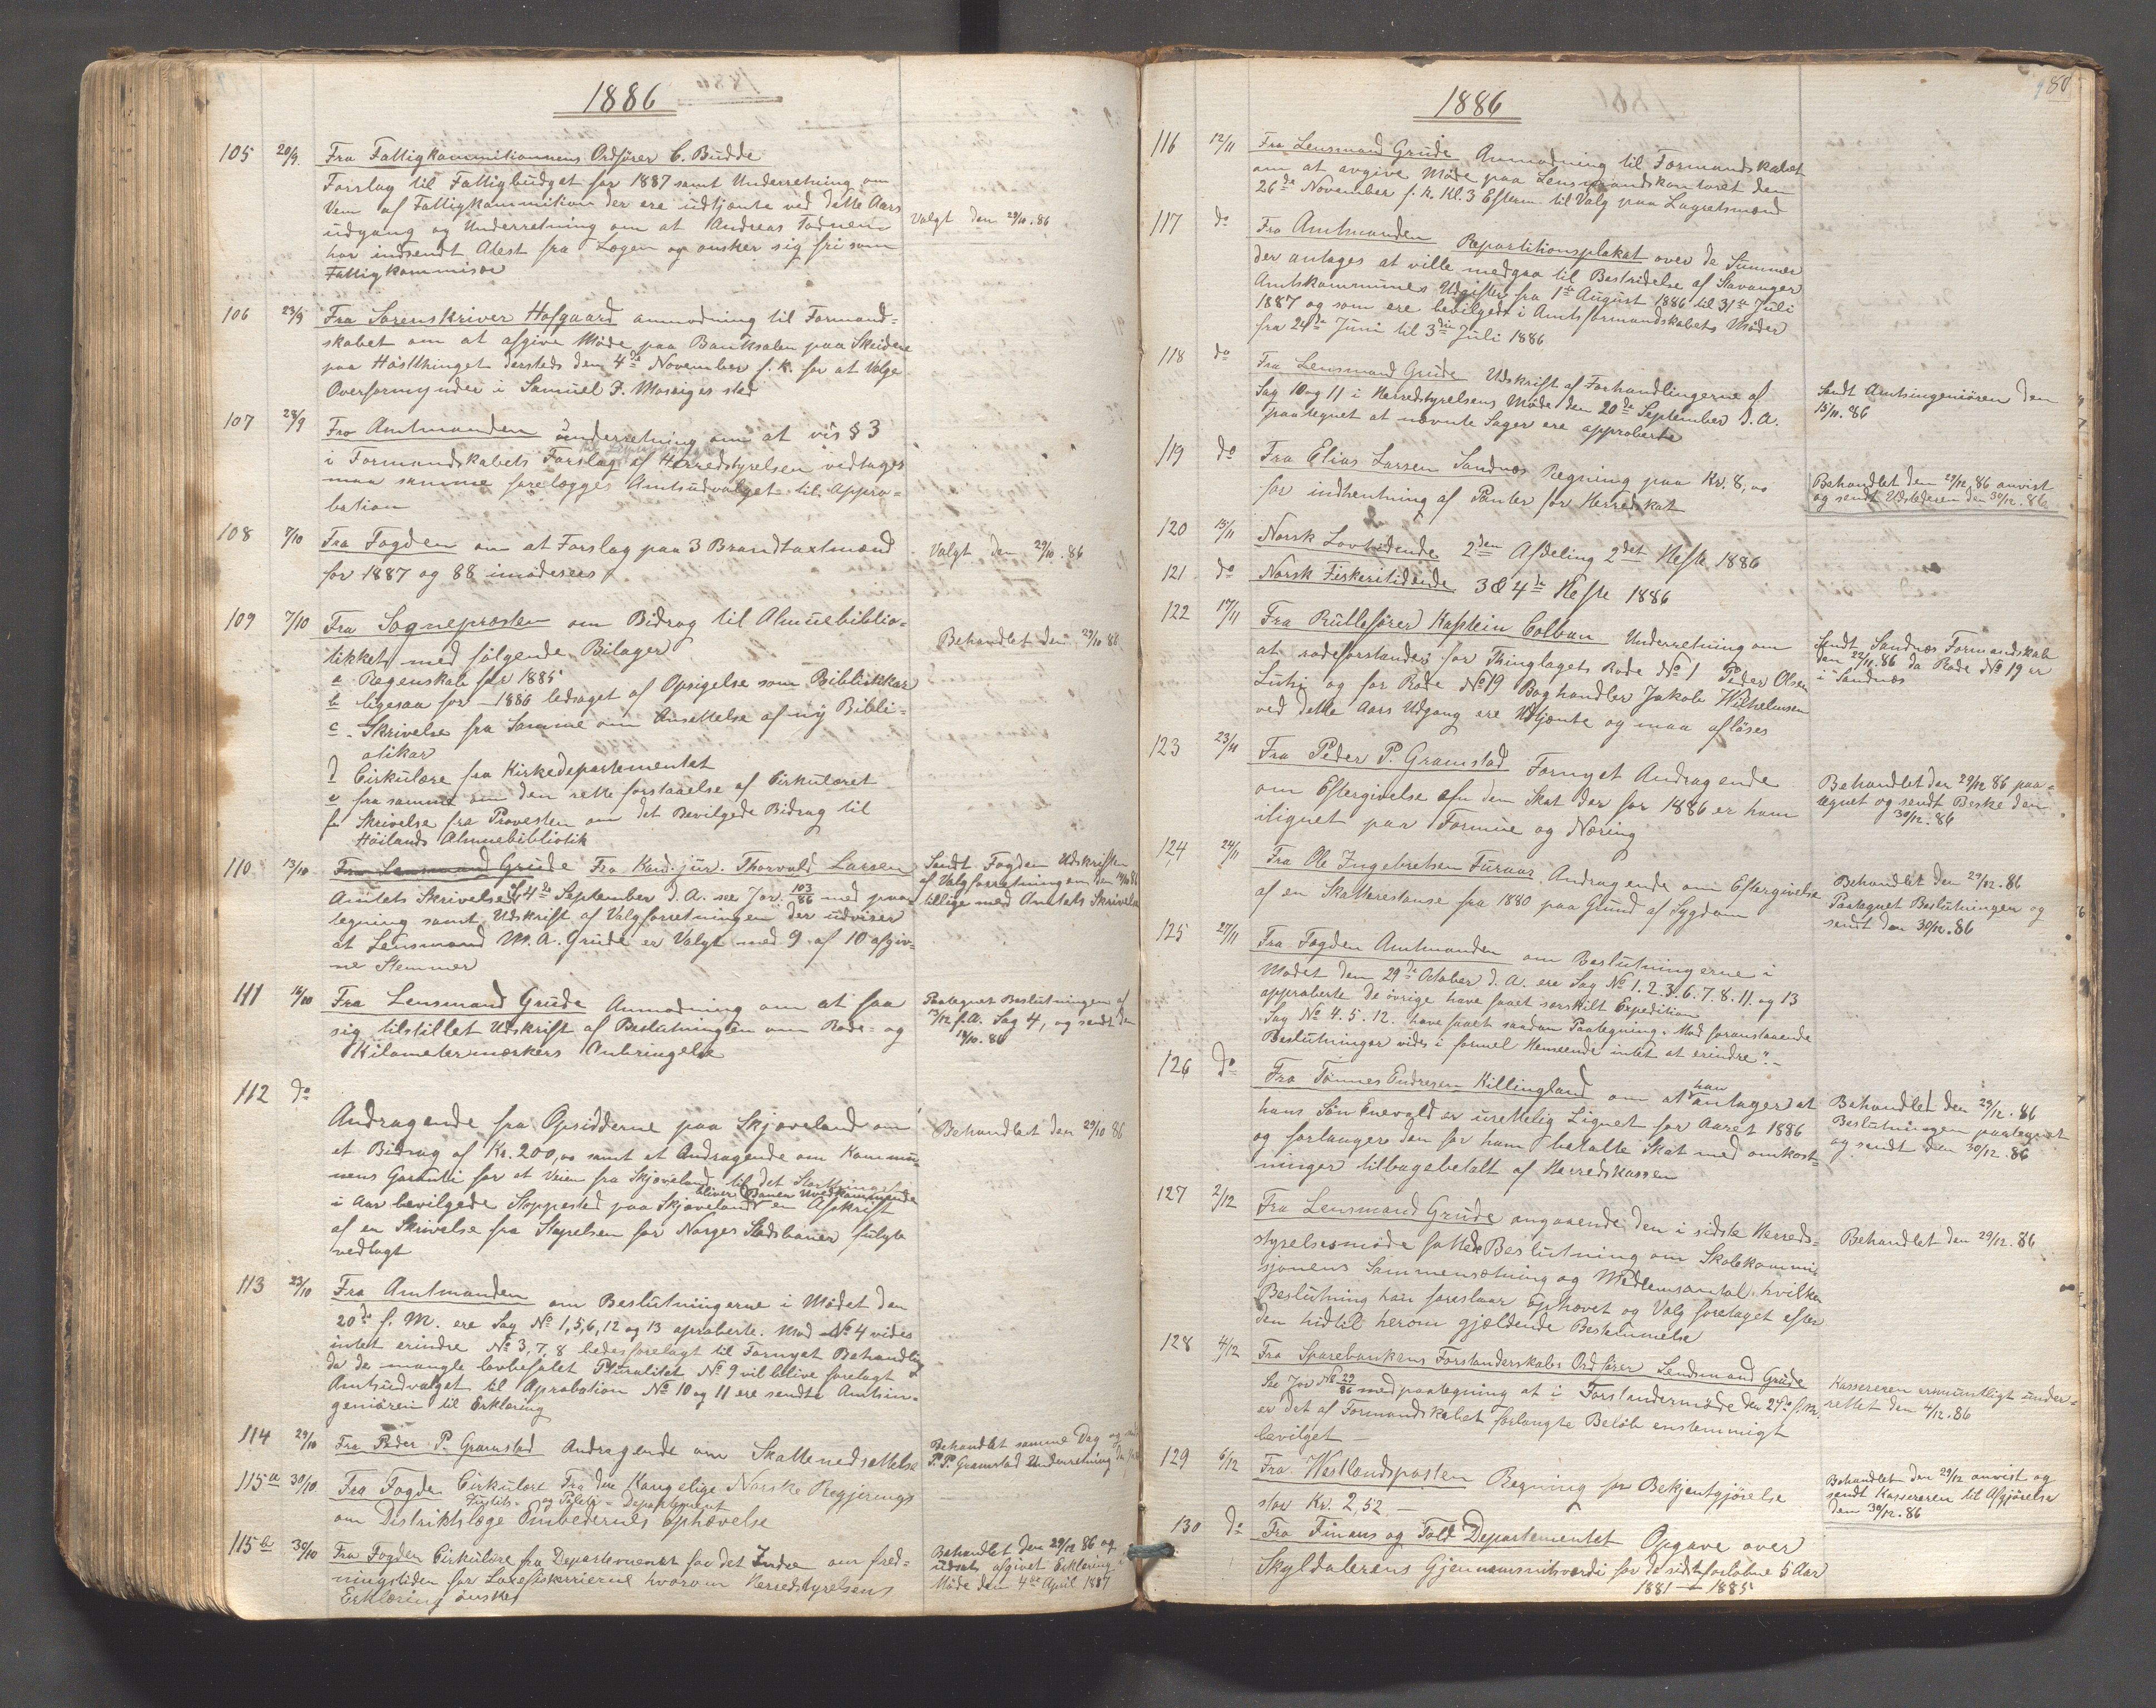 1886
105 20/9. Fra Fattigkommitionnens Ordförer C. Budde
Forslag til Fattigbudget for 1887 samt Underretning om
Vem af Fattigkommition der ere udtjente ved dette Aars
udgang og Underretning om at Andreas Tadnem
har indsendt Atest fra Lægen og önsker sig fri som
Fattigkommisær
Valgt den 29/10.86
106 23/9 Fra Sorenskriver Hofgaard anmodning til Formand-
skabet om at afgive Möde paa Banksalen paa Skeidene
paa Höstthinget dersteds den 4de November f. k. for at Vælge
Overformynder i Samuel F. Mossiges sted
107 28/9 Fra Amtmanden underretning om at vis § 3
i Formandskabets Forslag af Herredstyrelsen vedtages
maa samme forelægges Amtsudvalget til Appro-
bation
108 7/10 Fra Fogden om at Forslag paa 3 Brandtaxtmænd
for 1887 og 88 imödesees
Valgt den 29/10.86
109 7/10 Fra Sognepræsten om Bidrag til Almuebiblio-
tikket med fölgende Bilager
a Regenskab for 1885
b ligesaa for - 1886 ledsaget af Opsigelse som Bibliothkar
c - Skrivelse fra Samme om Ansættelse af ny Bibli-
otikar
d Cirkulære fra Kirkedepartementet
e fra samme om den rette forstaaelse af Cirkulæret
f Skrivelse fra Provesten om det Bevilgede Bidrag til
Höilands Almuebibliotik
Behandlet den 29/10 86
110 13/10 Fra Lensmand Grude Fra Kand. jur. Thorvald Larsen
Amtets Skrivelse af 4de September d. A. see Jor. 103/86 med paa-
tegning samt Udskrift af Valgforretningen der udviser
at Lensmand M. A. Grude er Valgt med 9 af 10 afgiv-
ne Stemmer
Sendt Fogden Udskriften
af Valgforretningen den 14/10 86
tillige med Amtets Skrivelse
111 16/10 Fra Lensmand Grude Anmodning om at faa
sig tilstillet Udskrift af Beslutningen om Rode- og
Kilometermærkers Anbringelse
Paategnet Beslutningen af
13/12 f.A. Sag 4, og sendt den
18/10.86
112 do
Andragende fra Opsidderne paa Skjæveland om
et Bidrag af Kr. 200,00 samt et Andragende om Kommu-
nens Garanti for at Veien fra Skjæveland til det Storthinget
bliver Banen uvedkommende
i Aar bevilgede Stoppested paa Skjæveland en Afskrift
af en Skrivelse fra Styrelsen for Norges Stadsbaner fulgte
vedlagt
Behandlet den 29/10 86
113 23/10 Fra Amtmanden om Beslutningerne i Mödet den
20de f. M. ere Sag No 1,5,6,12 og 13 aproberte. Mod No 4 vides
intet erindre No 3,7,8 bedes forelagt til Fornyet Behandling
da de mangle lovbefalet Pluralitet No 9 vil blive forelagt
Amtsudvalget til Aprobation No 10 og 11 ere sendte Amtsin-
geniören til Erklæring
114 29/10 Fra Peder P. Gramstad Andragende om Skattenedsættelse
Behandlet samme Dag og
P. P. Gramstad Underretning
115a 30/10 Fra Fogde Cirkulære Fra den Kongelige Norske Regjerings
Justits- og Politi- Departement
om Distriktslæge Embedernes Ophævelse
115b 30/10 Fra Fogden Cirkulære fra Departementet for det Indre om fred-
ningstiden for Laxefiskerierne hvorom Herredstyrelsens
Erklæring önskes
Behandlet den 29/12 86 og
udsat, afgivet Erklæring i
Möde den 4de April 1887
80
1886
116 12/11 Fra Lensmand Grude Anmodning til Formandskabet
om at avgive Möde paa Lensmandskontoret den
26de November f. k. Kl. 3 Efterm. til Valg paa Lagretsmænd
117 do Fra Amtmanden Repartitionsplakat over de Summer
der antages at ville medgaa til Bestridelse af Stavanger
Amtskommunes Udgifter fra 1ste August 1886 til 31te Juli
1887 og som ere bevilgede i Amtsformandskabets Möder
fra 24de Juni til 3die Juli 1886
118 do Fra Lensmand Grude Udskrift af Forhandlingerne af
Sag 10 og 11 i Herredstyrelsens Möde den 20de September d. A.
paategnet at nævnte Sager ere approberte
Sendt Amtsingeniören den
15/11.86
119 do Fra Elias Larsen Sandnæs Regning paa Kr. 8,00
for indhentning af Panter for Herredskat
Behandlet den 29/12 86 anvist
og sendt Udstederen den 30/12.86
120 13/11 Norsk Lovtidende 2den Afdeling 2det Hefte 1886
121 do Norsk Fiskeritidende 3 & 4de Hefte 1886
122 17/11 Fra Rulleförer Kaptein Colban Underretning om
at rodeforstander for Thinglagets Rode No 1 Peder Olsen
Lutsi og for Rode No 19 Boghandler Jakob Wilhelmsen
ved dette Aars Udgang ere Udtjente og maa aflöses
Sendt Sandnæs Formandskab
den 22/11.86 da Rode No 19 er
i Sandnæs
123 23/11 Fra Peder P. Gramstad Fornyet Andragende
om Eftergivelse af den Skat der for 1886 er ham
ilignet paa Formue og Næring
Behandlet den 29/12 86 paa-
tegnet og sendt Beske den
30/12.86
124 24/11 Fra Ole Ingebretsen Furaas Andragende om Eftergivelse
af en Skatterestanse fra 1880 paa Grund af Sygdom
Behandlet den 29/12.86
Paategnet Beslutningen og
sendt den 30/12.86
125 27/11 Fra Fogden Amtmanden om Beslutningerne i
Mödet den 29de October d. A. ere Sag No 1.2.3.6.7.8.11. og 13
approberte de övrige have faaet særskilt Expedition
Sag No 4.5.12. have faaet saadan Paategning. Mod foranstaaende
Beslutninger vides i formel Henseende intet at erindre". -
126 do Fra Tönnes Endresen Killingland om at han antager at
hans Sön Enevald er urettelig Lignet for Aaret 1886
og forlanger den for ham betalte Skat med omkost-
ninger tilbagebetalt af Herredskassen
Behandlet den 29/12.86
Beslutningen paategnet
og sendt den 30/12.86
127 2/12 Fra Lensmand Grude angaaende den i sidste Herreds-
styrelsesmöde fattede Beslutning om Skolekommi-
sjonens Sammensætning og Medlemsantal. hvilken
Beslutning han foreslaar ophævet og Valg foretaget efter
den hidtil herom gjældende Bestemmelse
Behandlet den 29/12.86
128 4/12 Fra Sparebankens Forstanderskabs Ordförer Lendsmand Grude
See Jor No 29/86 med paategning at i Forstandermöde den 29de f. M.
er det af Formandskabet forlangte Belöb enstemmigt
bevilget -
Kassereren ermundtligt under-
rettet den 4/12.86
129 6/12 Fra Westlandsposten Regning for Bekjentgjörelse
stor Kr. 2,52 -
Behandlet den 29/12 anvist og
sendt Kassereren til Afgjörelse
den 30/12.86
130 do Fra Finans og Told Departementet Opgave over
Skyldalerens Gjennemsnitsværdi for de sidstforlöbne 5 Aar
1881 - 1885